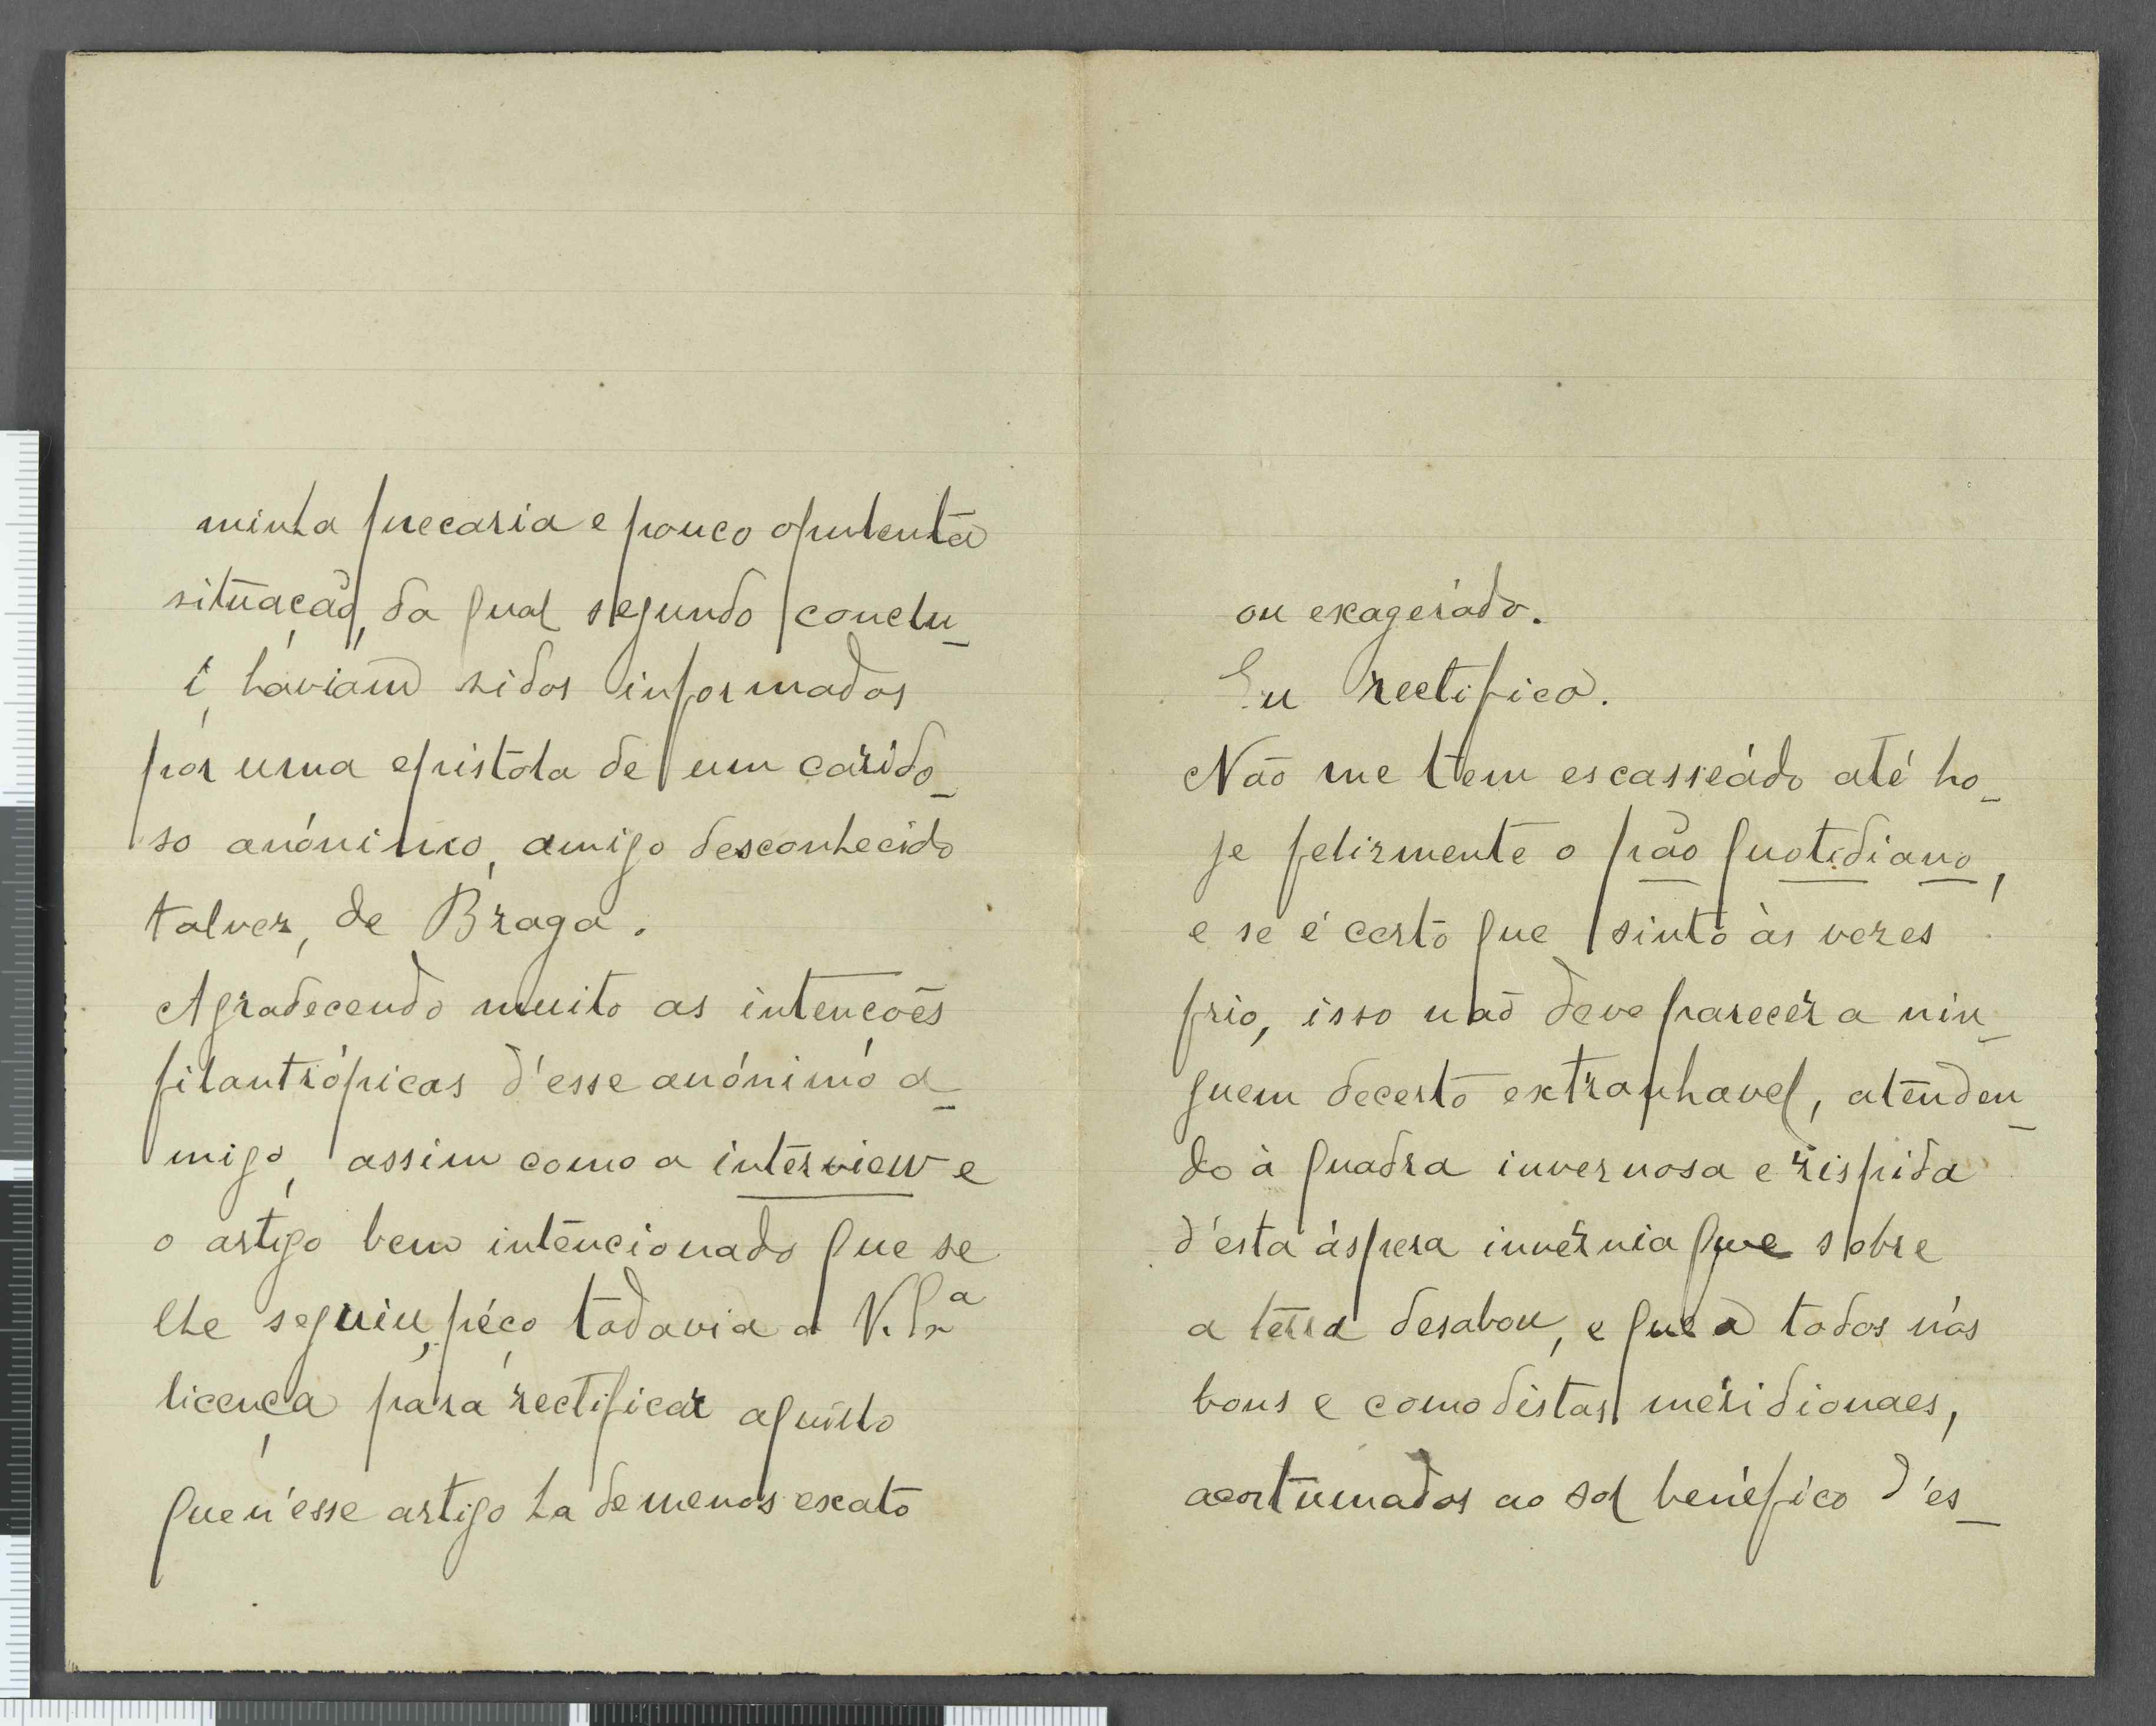 minha precaria e pouco opulenta
situação, da qual segundo conclu-
í, haviam sidos informados
por uma epistola de um carido-
so anónimo, amigo desconhecido
talvez, de Braga.
Agradecendo muito as intenções
filantrópicas d'esse anónimo a-
migo, assim como a interview e
o artigo bem intencionado que se
lhe seguiu, péço todavia a V. Sª
licença para rectificar aquillo
que n'esse artigo ha de menos exato
ou exagerádo.
Eu rectifico.
Não me tem escasseádo até ho-
je felizmente o pão quotidiano,
e se é certo que sinto às vezes
frio, isso não deve parecer a nin-
guem decerto extranhavel, atenden-
do à quadra invernosa e rispida
d'esta áspera invérnia que sobre
a terra desabou, e que a todos nós
bons e comodistas meridionaes,
acostumados ao sol benéfico d'es-